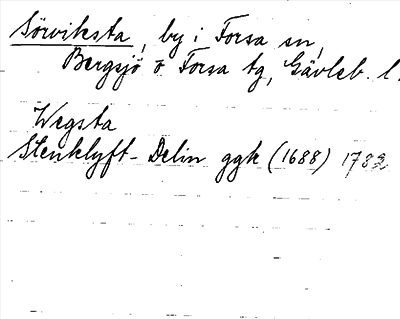 Sörviksta, by i Forsa sn,
Bergsjö o Forsa tg, Gävleb. l.
Wegsta
Stenklyft-Delin ggk (1688) 1782